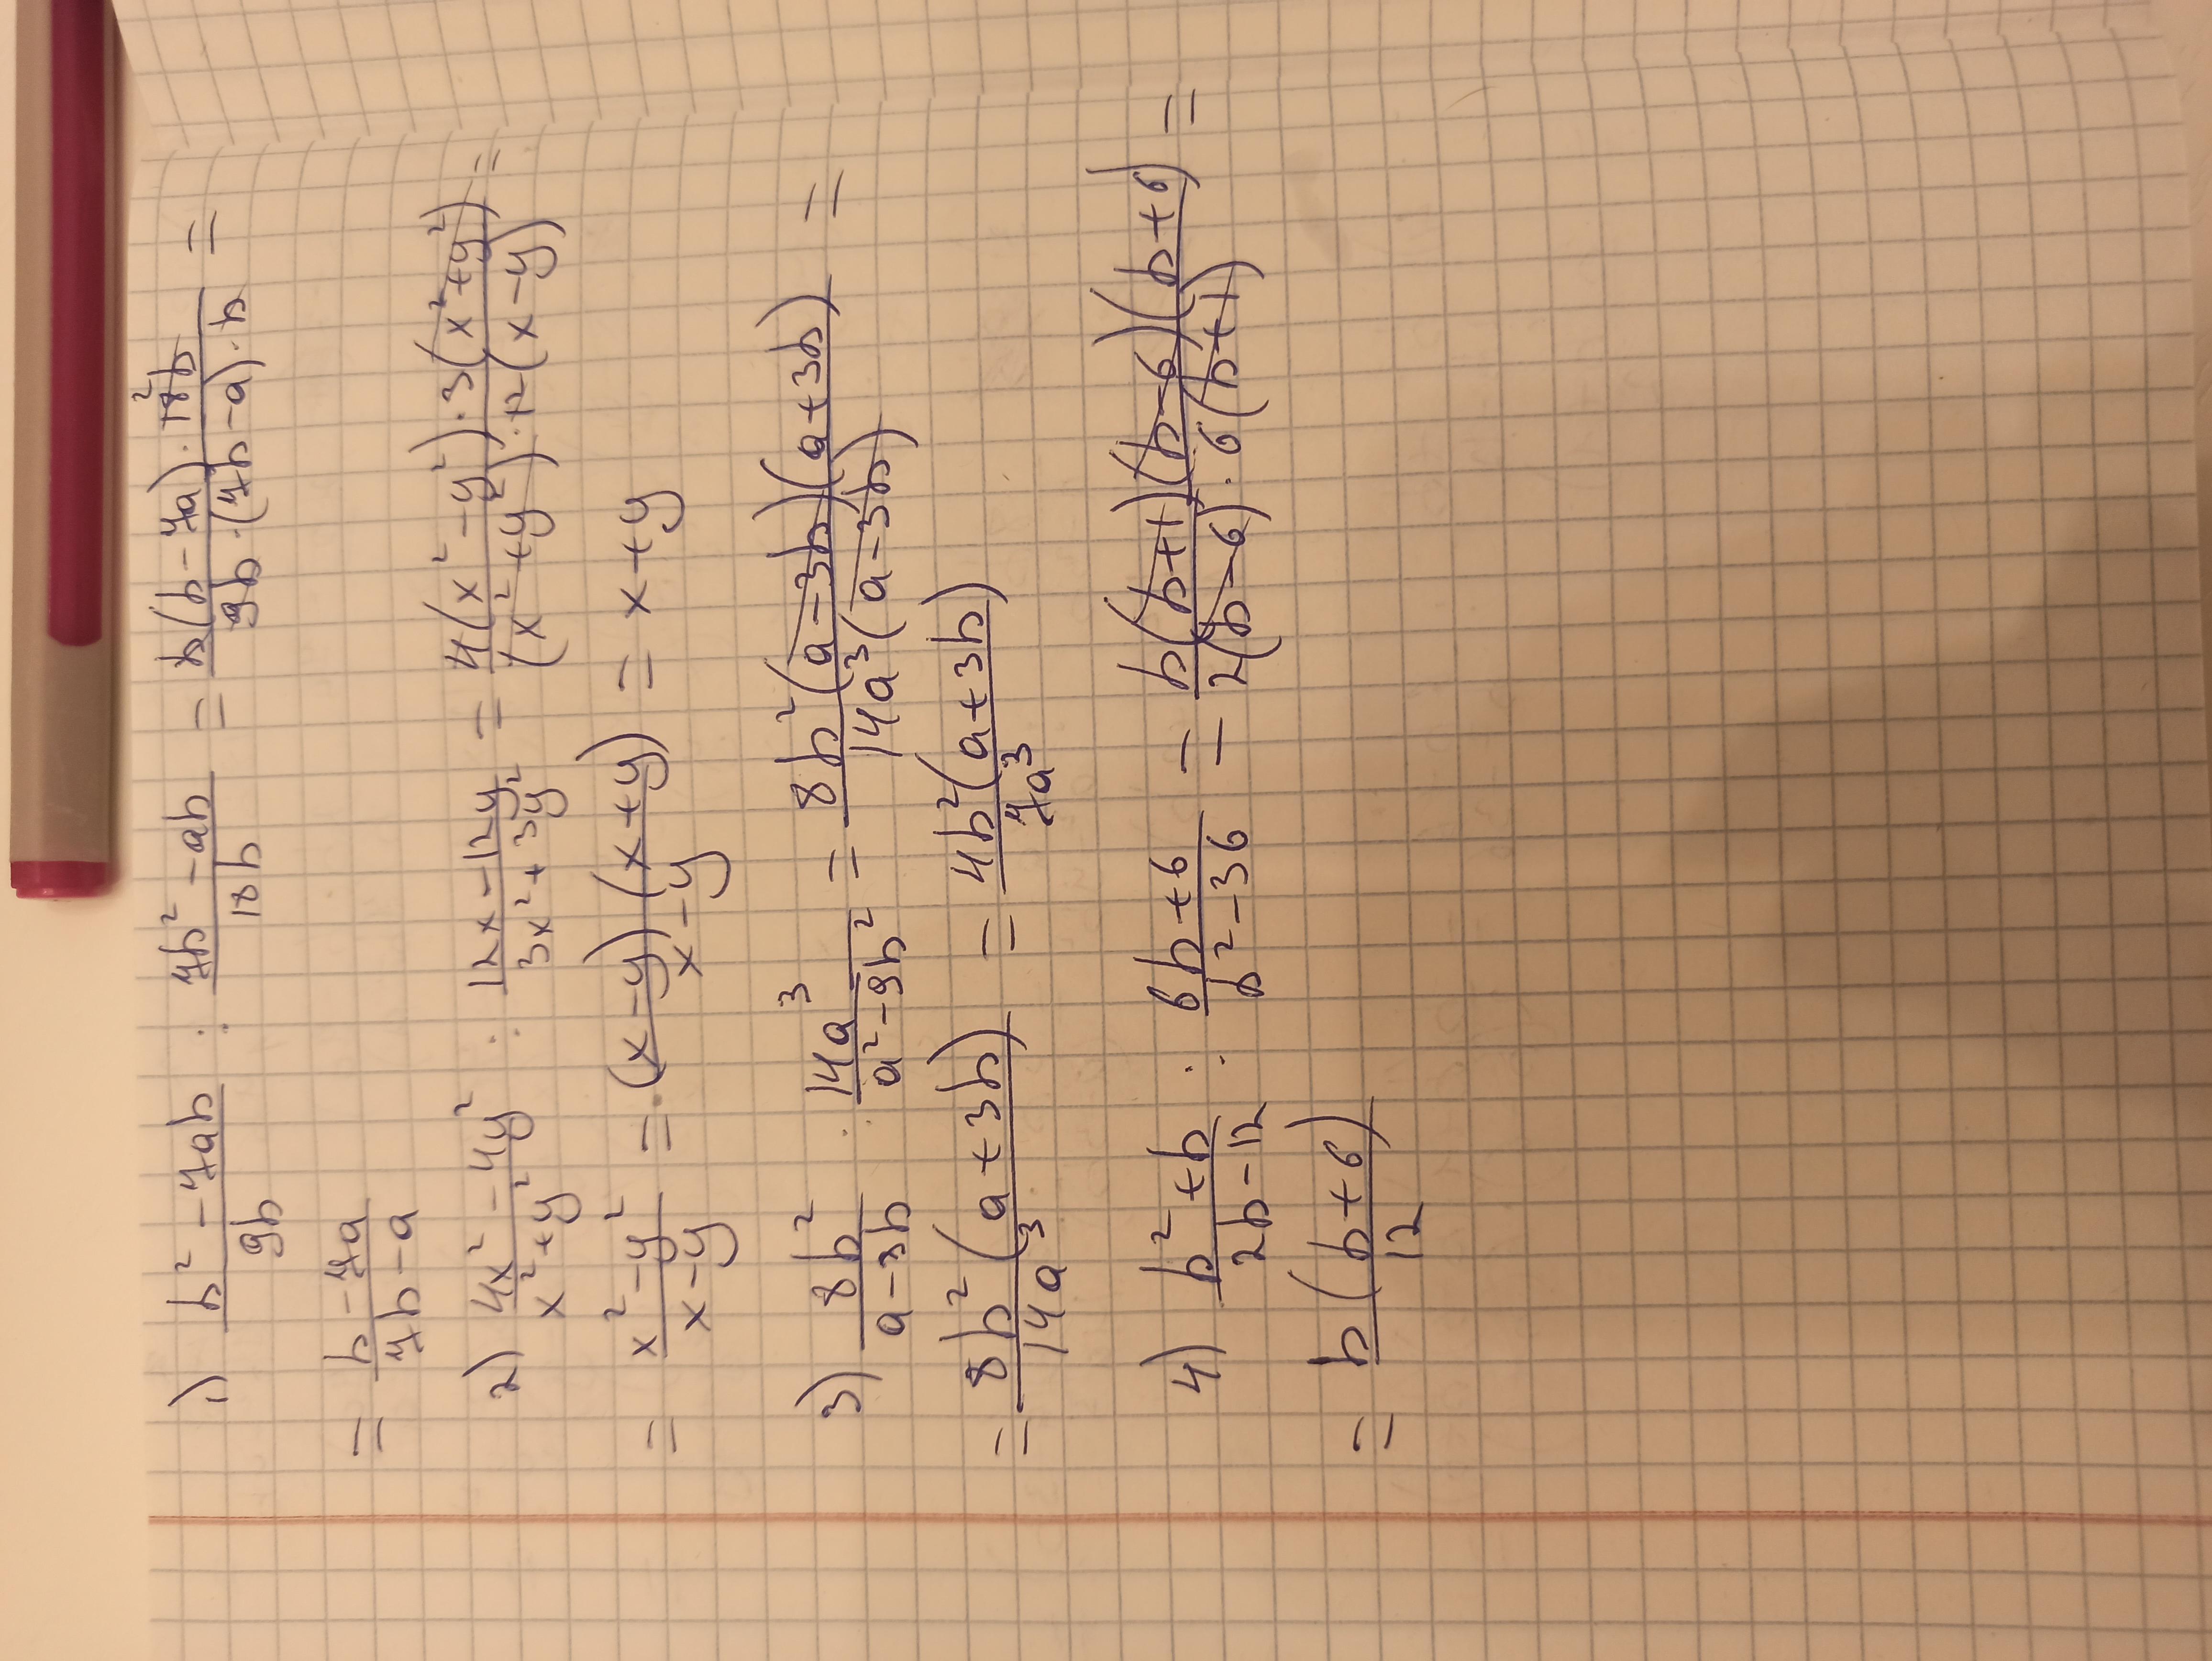 1) (b² - 7ab)/(9b) : (7b² - ab)/(18b) = (b(b - 7a) · 18b ²)/(9b · (7b - a) · b) =
= (b - 7a)/(7b - a)
2) (4x² - 4y²)/(x² + y²) : (12x - 12y)/(3x² + 3y²) = (4(x² - y²) · 3(x² + y²))/((x² + y²) · 12(x - y)) =
= (x² - y²)/(x - y) = ((x - y)(x + y))/(x - y) = x + y
3) (8b²)/(a - 3b) : (14a³)/(a² - 9b²) = (8b²(a - 3b)(a + 3b))/(14a³(a - 3b)) =
= (8b²(a + 3b))/(14a³) = (4b²(a + 3b))/(7a³)
4) (b² + b)/(2b - 12) : (6b + 6)/(b² - 36) = (b(b + 1)(b - 6)(b + 6))/(2(b - 6) · 6(b + 1)) =
= (b(b + 6))/12